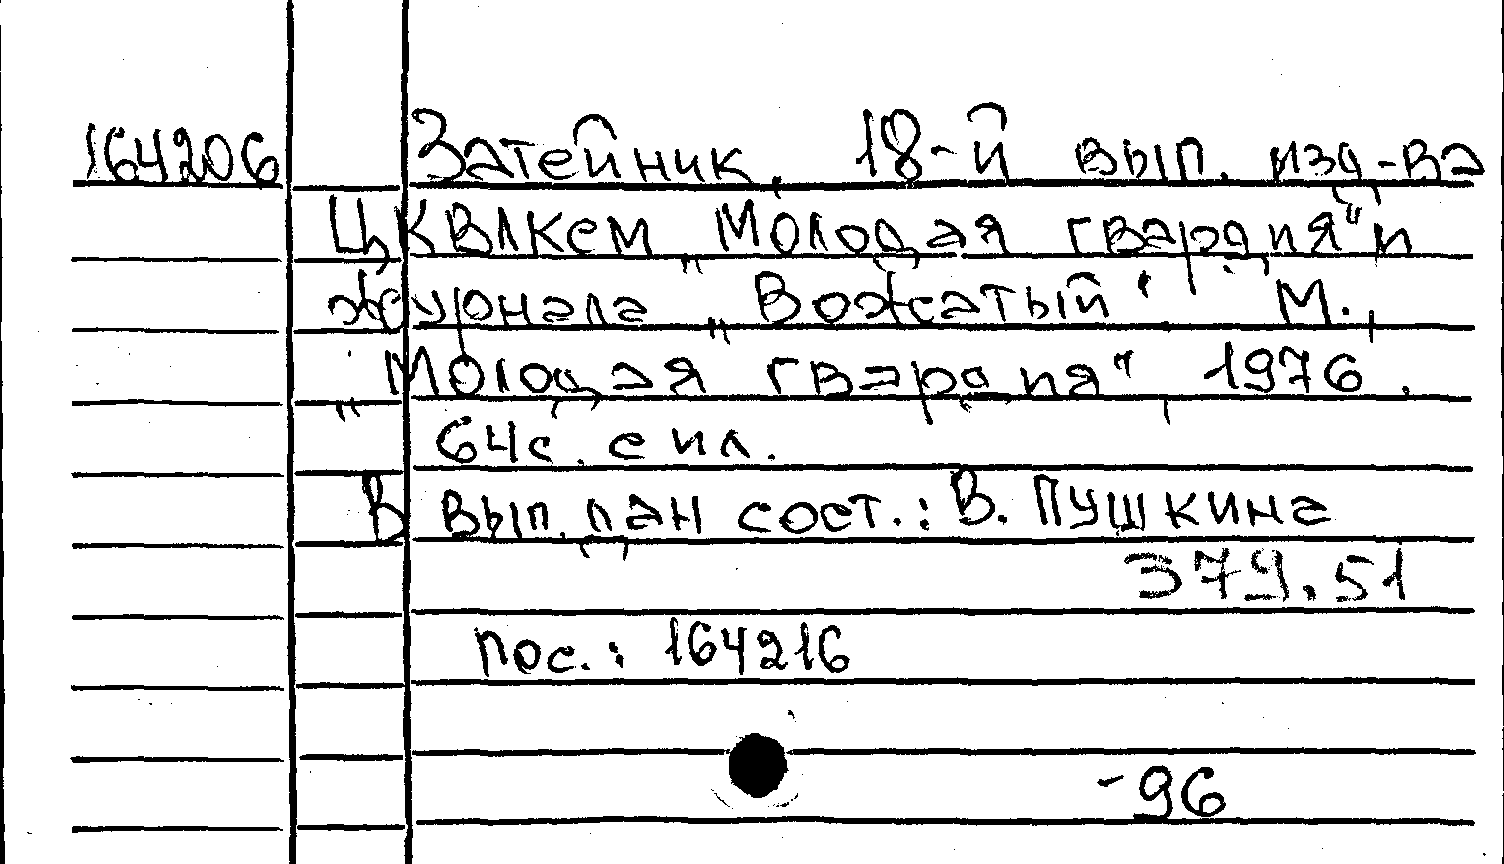 164206 Затейник. 18-й вып. изд-ва
ЦКВЛКСМ „Молодая гвардия" и
журнала „Вожатый". М.,
„Молодая гвардия" 1976.
64с. с ил.
В вып. дан сост.: В. Пушкина
379.51
пос.: 164216
-96